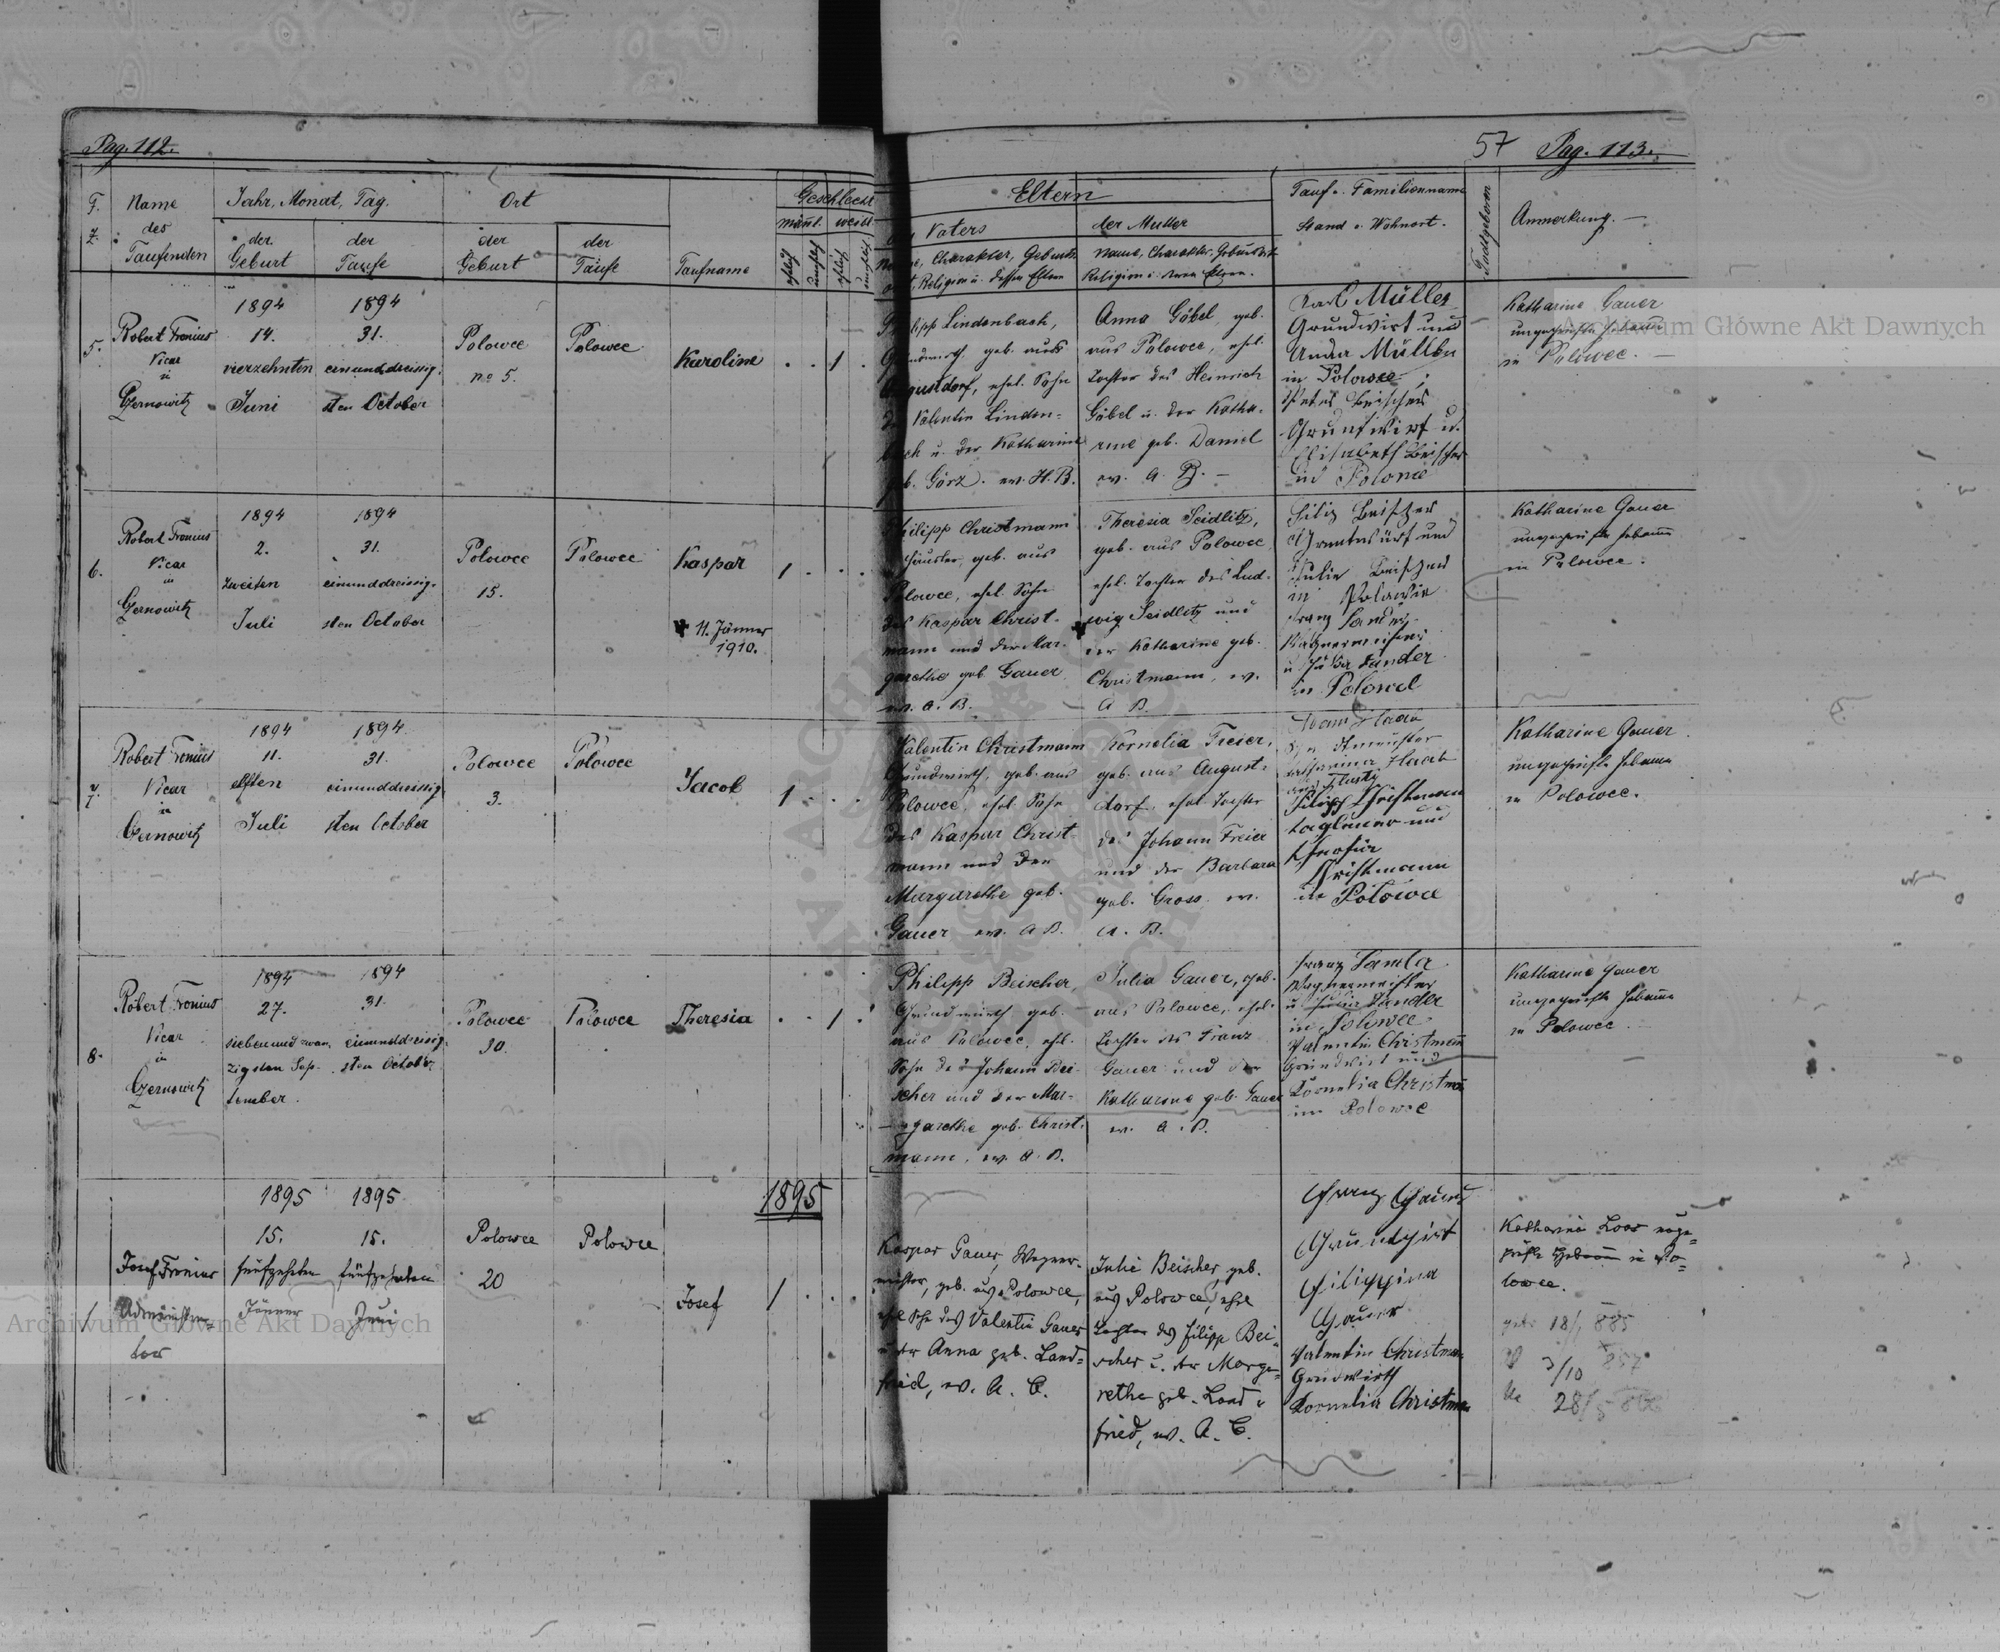 Pag. 112.
57 Pag. 113.
F. Z. Name des Taufenden
Jahr, Monat, Tag
der Geburt
der Taufe
Ort
der Geburt
der Taufe
Taufname
Geschlecht
männl. weibl.
ehelich unehelich ehelich unehelich
Eltern
Vaters
Charakter, Geburts
Religion u. dessen Eltern
der Mutter
Name, Charakter, Geburtsort
Religion u. deren Eltern.
Tauf- u. Familienname
Stand u. Wohnort.
Todtgeboren
Anmerkung. —
5.
Robert Fronius
Vicar
in
Czernowitz
1894
14.
vierzehnten
Juni
1894
31.
einunddreissig-
sten October
Polowce
no 5.
Polowce
Karoline
1
Lindenbach,
geb. aus
Augustdorf, ehel. Sohn
Valentin Linden-
u. der Katharine
Görz. ev. H. B.
Anna Göbel, geb.
aus Polowce, ehel.
Tochter des Heinrich
Göbel u. der Katha-
rine geb. Daniel
ev. A. B. —
Karl Müller
Grundwirt und
Anna Müller
in Polowce;
Peter Beischer
Gruntwirt u.
Elisabeth Beischer
in Polowce
Katharine Gauer
ungeprüfte Hebamme
in Polowce. —
6.
Robert Fronius
Vicar
in
Czernowitz
1894
2.
zweiten
Juli
1894
31.
einunddreissig-
sten October
Polowce
15.
Polowce
Kaspar
1
11. Jänner
1910.
Philipp Christmann
Häusler, geb. aus
Polowce, ehel. Sohn
des Kaspar Christ-
mann und der Mar-
garethe geb. Gauer
ev. A. B.
Theresia Seidlitz,
geb. aus Polowce
ehel. Tochter des Lud-
wig Seidlitz und
der Katharine geb.
Christmann, ev.
A B.
Beischer
und
Julie Beischer
in
Franz Sander
u. Sander
in Polowce
Katharine Gauer
ungeprüfte Hebamme
in Polowce.
7.
Robert Fronius
Vicar
in
Czernowitz
1894
11.
elften
Juli
1894
31.
einunddreissig-
sten October
Polowce
3.
Polowce
Jacob
1
Valentin Christmann
Grundwirth, geb. aus
Polowce, ehel. Sohn
des Kaspar Christ-
mann und der
Margarethe geb.
Gauer ev. A B.
Kornelia Freier,
geb. aus August-
dorf, ehel. Tochter
des Johann Freier
und der Barbara
geb. Gross ev.
A. B.
Katharina
Christman
und
Kristmann
in Polowce
Katharine Gauer
ungeprüfte Hebamme
in Polowce.
8.
Robert Fronius
Vicar
in
Czernowitz
1894
27.
siebenundzwan-
zigsten Sep-
tember.
1894
31.
einunddreissig-
sten October
Polowce
30.
Polowce
Theresia
1
Philipp Beischer,
Grundwirth geb.
aus Polowce, ehl.
Sohn des Johann Bei-
scher und der Mar-
garethe geb. Christ-
mann, ev. A. B.
Julia Gauer, geb.
aus Polowce, ehel.
Tochter des Franz
Gauer und der
Katharine geb. Gauer
ev. A. B.
Franz
Wagnermeister
u. Sander
in Polowce
Valentin Christmann
Grundwirt und
Kornelia Christman
in Polowce
Katharine Gauer
ungeprüfte Hebamme
in Polowce
1895
1
Josef Fronius
Administra-
tor
1895
15.
fünfzehnten
Jänner
1895
15.
fünfzehnten
Juni
Polowce
20
Polowce
Josef
1
Kaspar Gauer, Wagner-
meister, geb. aus Polowce,
ehel Sohn des Valentin Gauer
u. der Anna geb. Land-
fried, ev. A. B.
Julie Beischer, geb.
aus Polowce, ehel
Tochter des Filipp Bei-
scher u. der Marga-
rethe geb. Land-
fried, ev. A. B.
Franz Gauer
Grundwirt
Filippina
Gauer
Valentin Christman
Grundwirth
Kornelia Christman
Katharina Loos unge-
prüfte Hebamme in Po-
lowce.
18/1 885
3/10 857
28/5
Archiwum Główne Akt Dawnych
Archiwum Główne Akt Dawnych